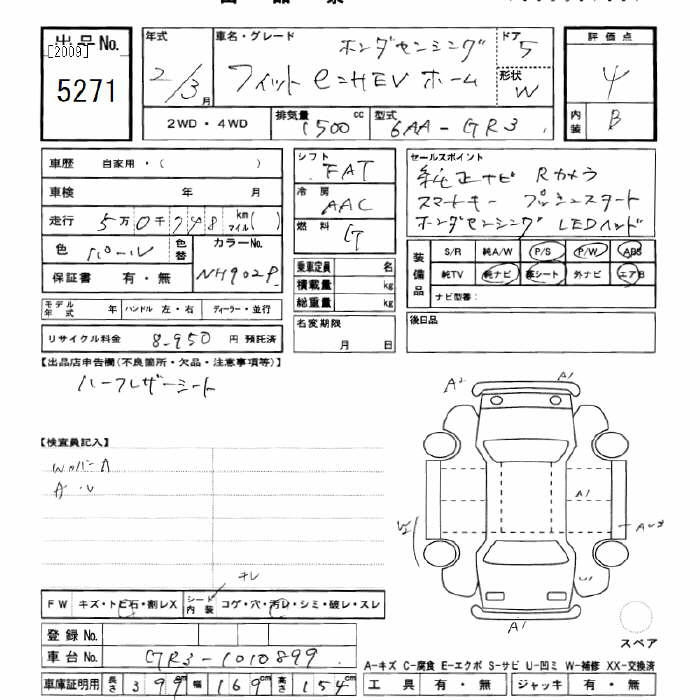 出品No.
[2009]
5271
年式
2/3月
車名・グレード
ホンダセンシング
フィット e:HEV ホーム
ドア
5
形状
W
評価点
4
内装
B
2WD・4WD
排気量
1500cc
型式
6AA-GR3
車歴 自家用・( )
車検 年 月
走行 5万0千748km マイル( )
色 パール 色替
カラーNo.
NH902P
保証書 有・無
モデル年式 年 ハンドル 左・右 ディーラー・並行
リサイクル料金 8,950 円 預託済
シフト
FAT
冷房
AAC
燃料
G
乗車定員 名
積載量 kg
総重量 kg
名変期限
月 日
セールスポイント
純正ナビ Rカメラ
スマートキー プッシュスタート
ホンダセンシング LEDヘッド
装備品
S/R 純A/W P/S P/W ABS
純TV 純ナビ 革シート 外ナビ エアB
ナビ型番:
後日品
【出品店申告欄(不良箇所・欠品・注意事項等)】
ハーフレザーシート
【検査員記入】
WカバーA
A
A2
A1
A1
A1
FW キズ・トビ石・割レX
シート内装 コゲ・穴・汚レ・シミ・破レ・スレ
スペア
登録No.
車台No. GR3-1010899
A-キズ C-腐食 E-エクボ S-サビ U-凹ミ W-補修 XX-交換済
車庫証明用 長さ 399cm 幅 169cm 高さ 154cm
工具 有・無 ジャッキ 有・無